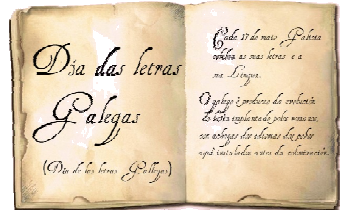 Día das letras
Galegas
(Día de las letras Gallegas)
Cada 17 de maio, Galicia
celebra as súas letras e a
súa Lingua.
O galego é producto da evolución
do latín implantado polos romanos,
coas achegas dos idiomas dos pobos
aquí instalados antes da colonización.